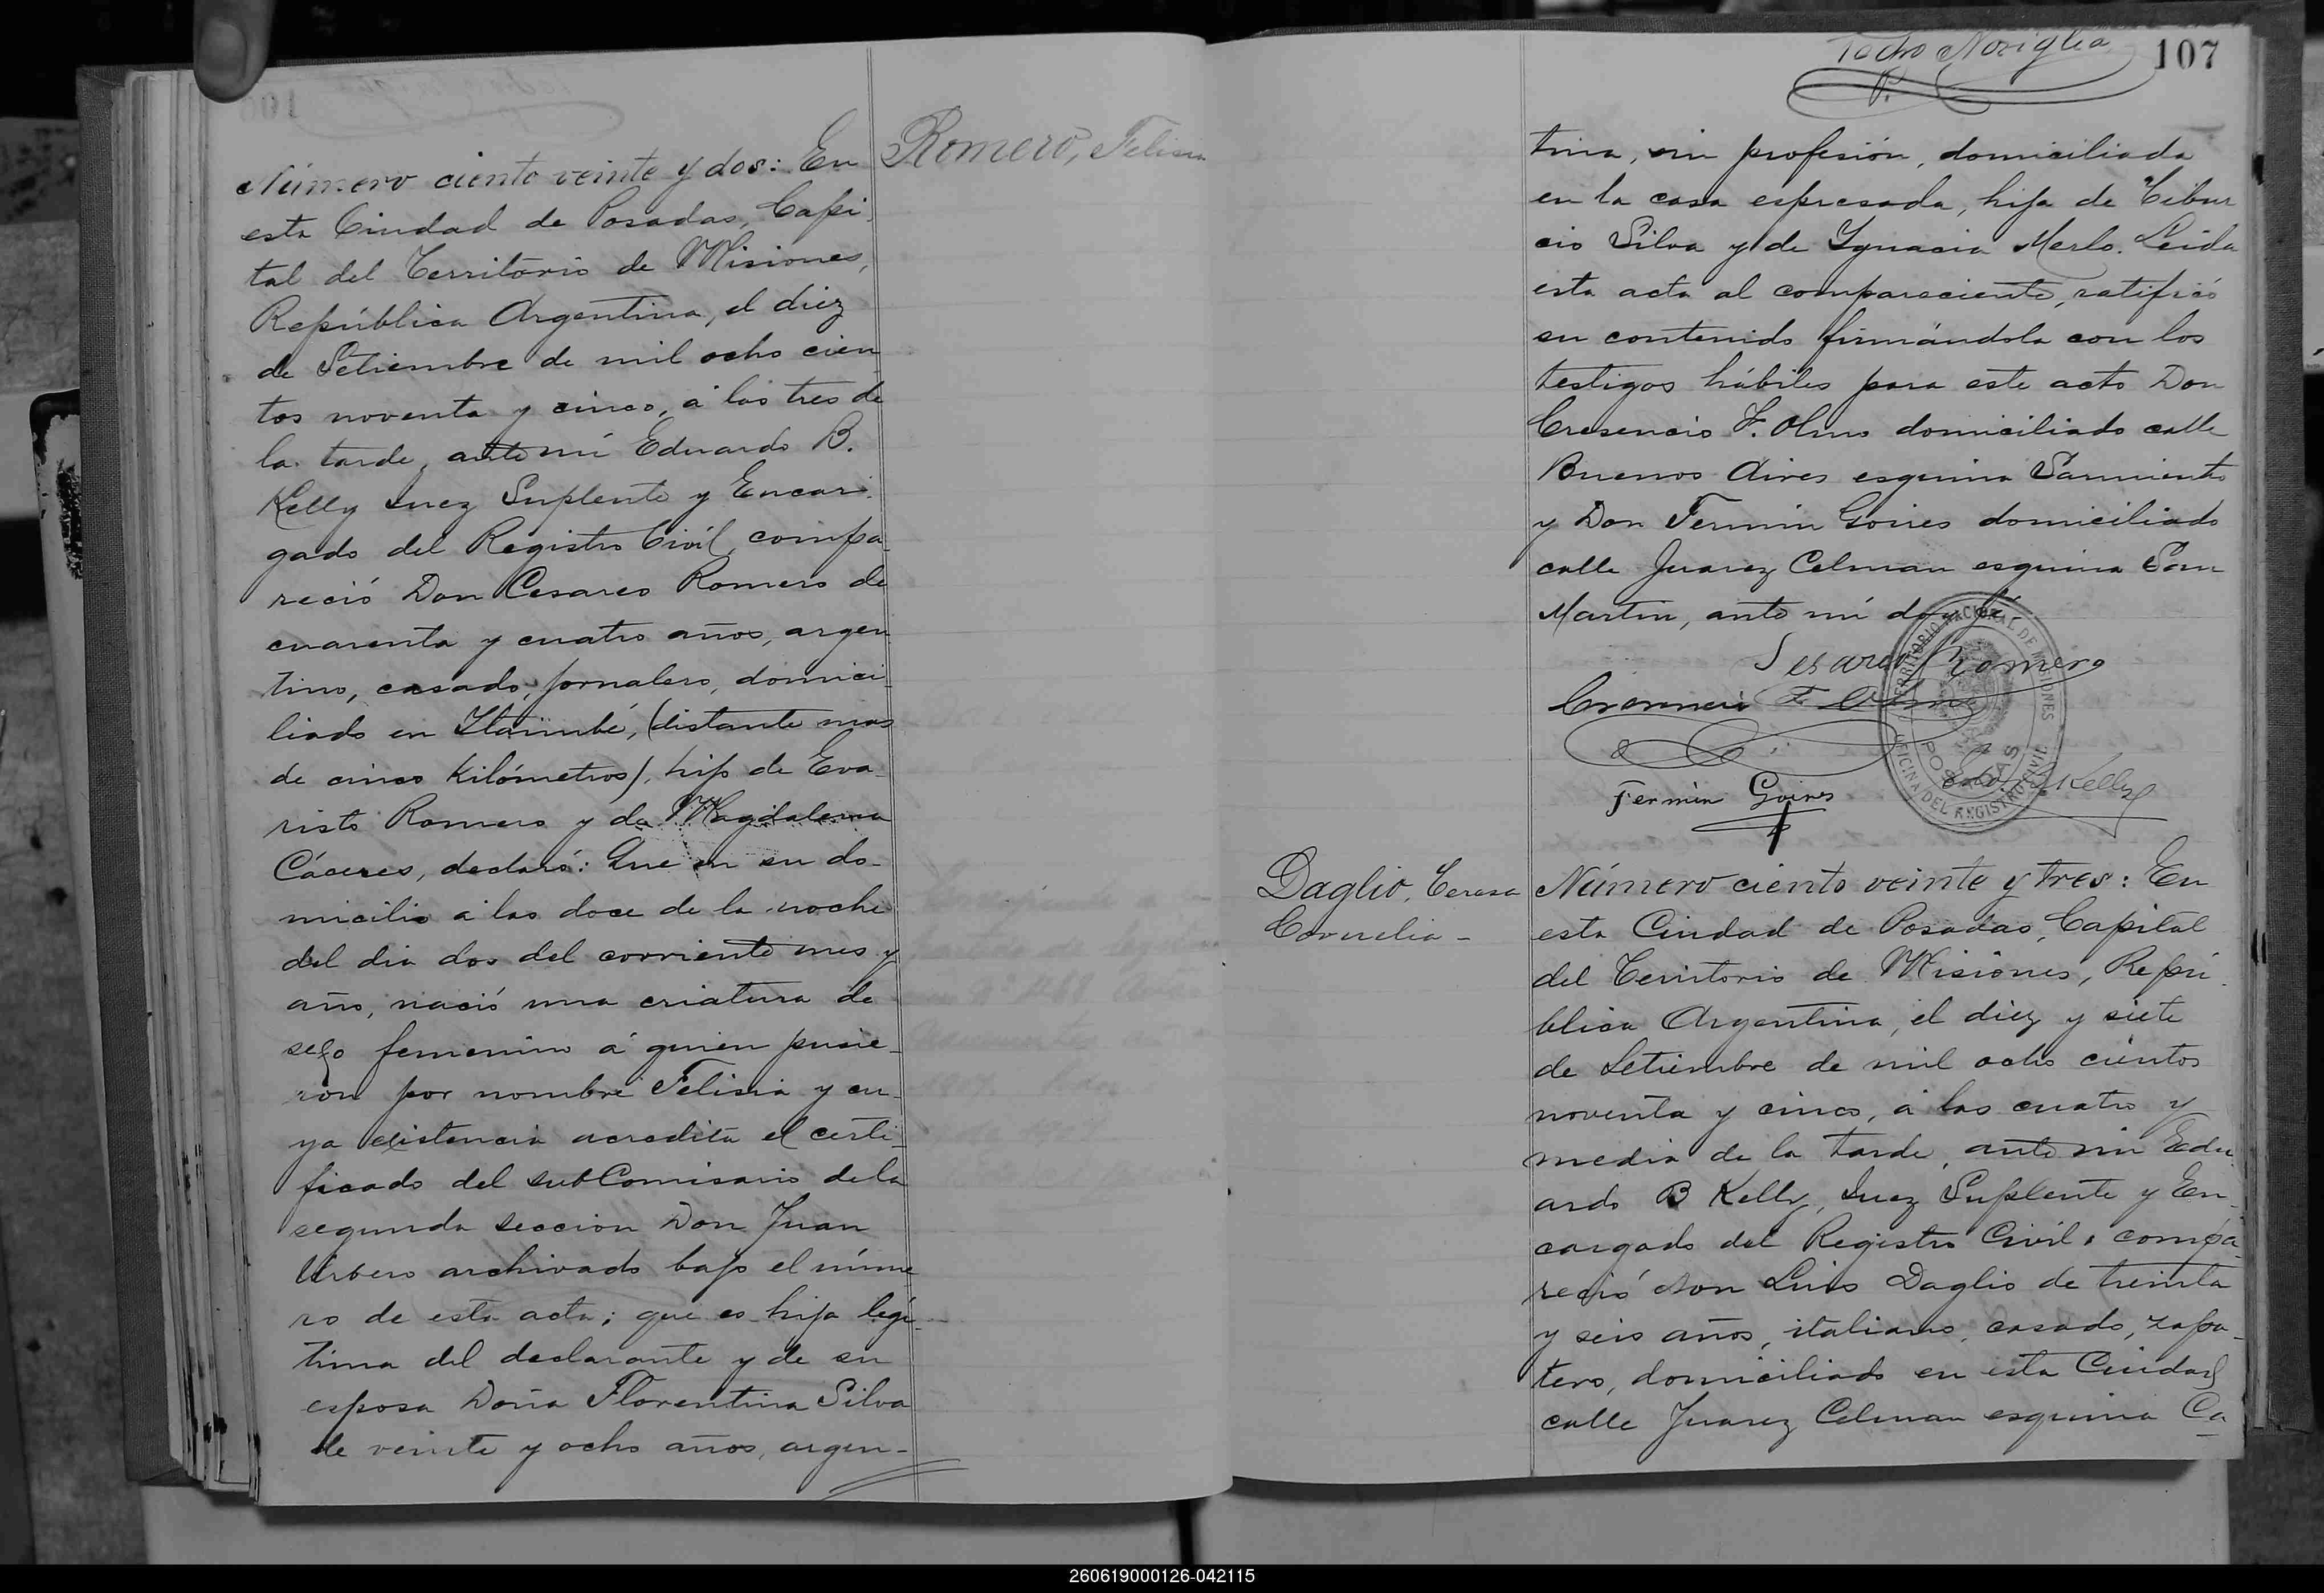 Número ciento veinte y dos: En
Romero, Felisia
esta Ciudad de Posadas, Capi-
tal del Territorio de Misiones,
República Argentina, el diez
de Setiembre de mil ocho cien
tos noventa y cinco, á las tres de
la tarde, ante mí Eduardo B.
Kelly Juez Suplente y Encar-
gado del Registro Civil, compa-
reció Don Cesareo Romero de
cuarenta y cuatro años, argen
tino, casado, jornalero, domici-
liado en Itaimbé, (distante mas
de cinco kilómetros), hijo de Eva-
risto Romero y de Magdalena
Cáceres, declaró: Que en su do-
micilio a las doce de la noche
del dia dos del corriente mes y
año, nació una criatura de
sexo femenino á quien pusie-
ron por nombre Felisia y cu-
ya existencia acredita el certi-
ficado del subComisario de la
segunda seccion Don Juan
Urbero archivado bajo el núme
ro de esta acta; que es hija legi-
tima del declarante y de su
esposa Doña Florentina Silva
de veinte y ocho años, argen-
107
tina, sin profesión, domiciliada
en la casa espresada, hija de Tibur
cio Silva y de Ygnacia Merlo. Leida
esta acta al compareciente, ratificó
su contenido firmándola con los
testigos hábiles para este acto Don
Cresencio F. Olmo domiciliado calle
Buenos Aires esquina Sarmiento
y Don Fermin Goires domiciliado
calle Juarez Celman esquina San
Martin, ante mí doy fé
Sesareo Romero
F. Olmo
Fermin Goires
Kelly
TERRITORIO NACIONAL DE MISIONES
POSADAS
OFICINA DEL REGISTRO CIVIL
Daglio, Teresa
Cornelia -
Número ciento veinte y tres: En
esta Ciudad de Posadas, Capital
del Territorio de Misiones, Repú-
blica Argentina, el diez y siete
de Setiembre de mil ocho cientos
noventa y cinco, á las cuatro y
media de la tarde, ante mi Edu
ardo B Kelly, Juez Suplente y En-
cargado del Registro Civil, compa-
reció Don Luis Daglio de treinta
y seis años, italiano, casado, zapa-
tero, domiciliado en esta Ciudad
calle Juarez Celman esquina Ca-
260619000126-042115